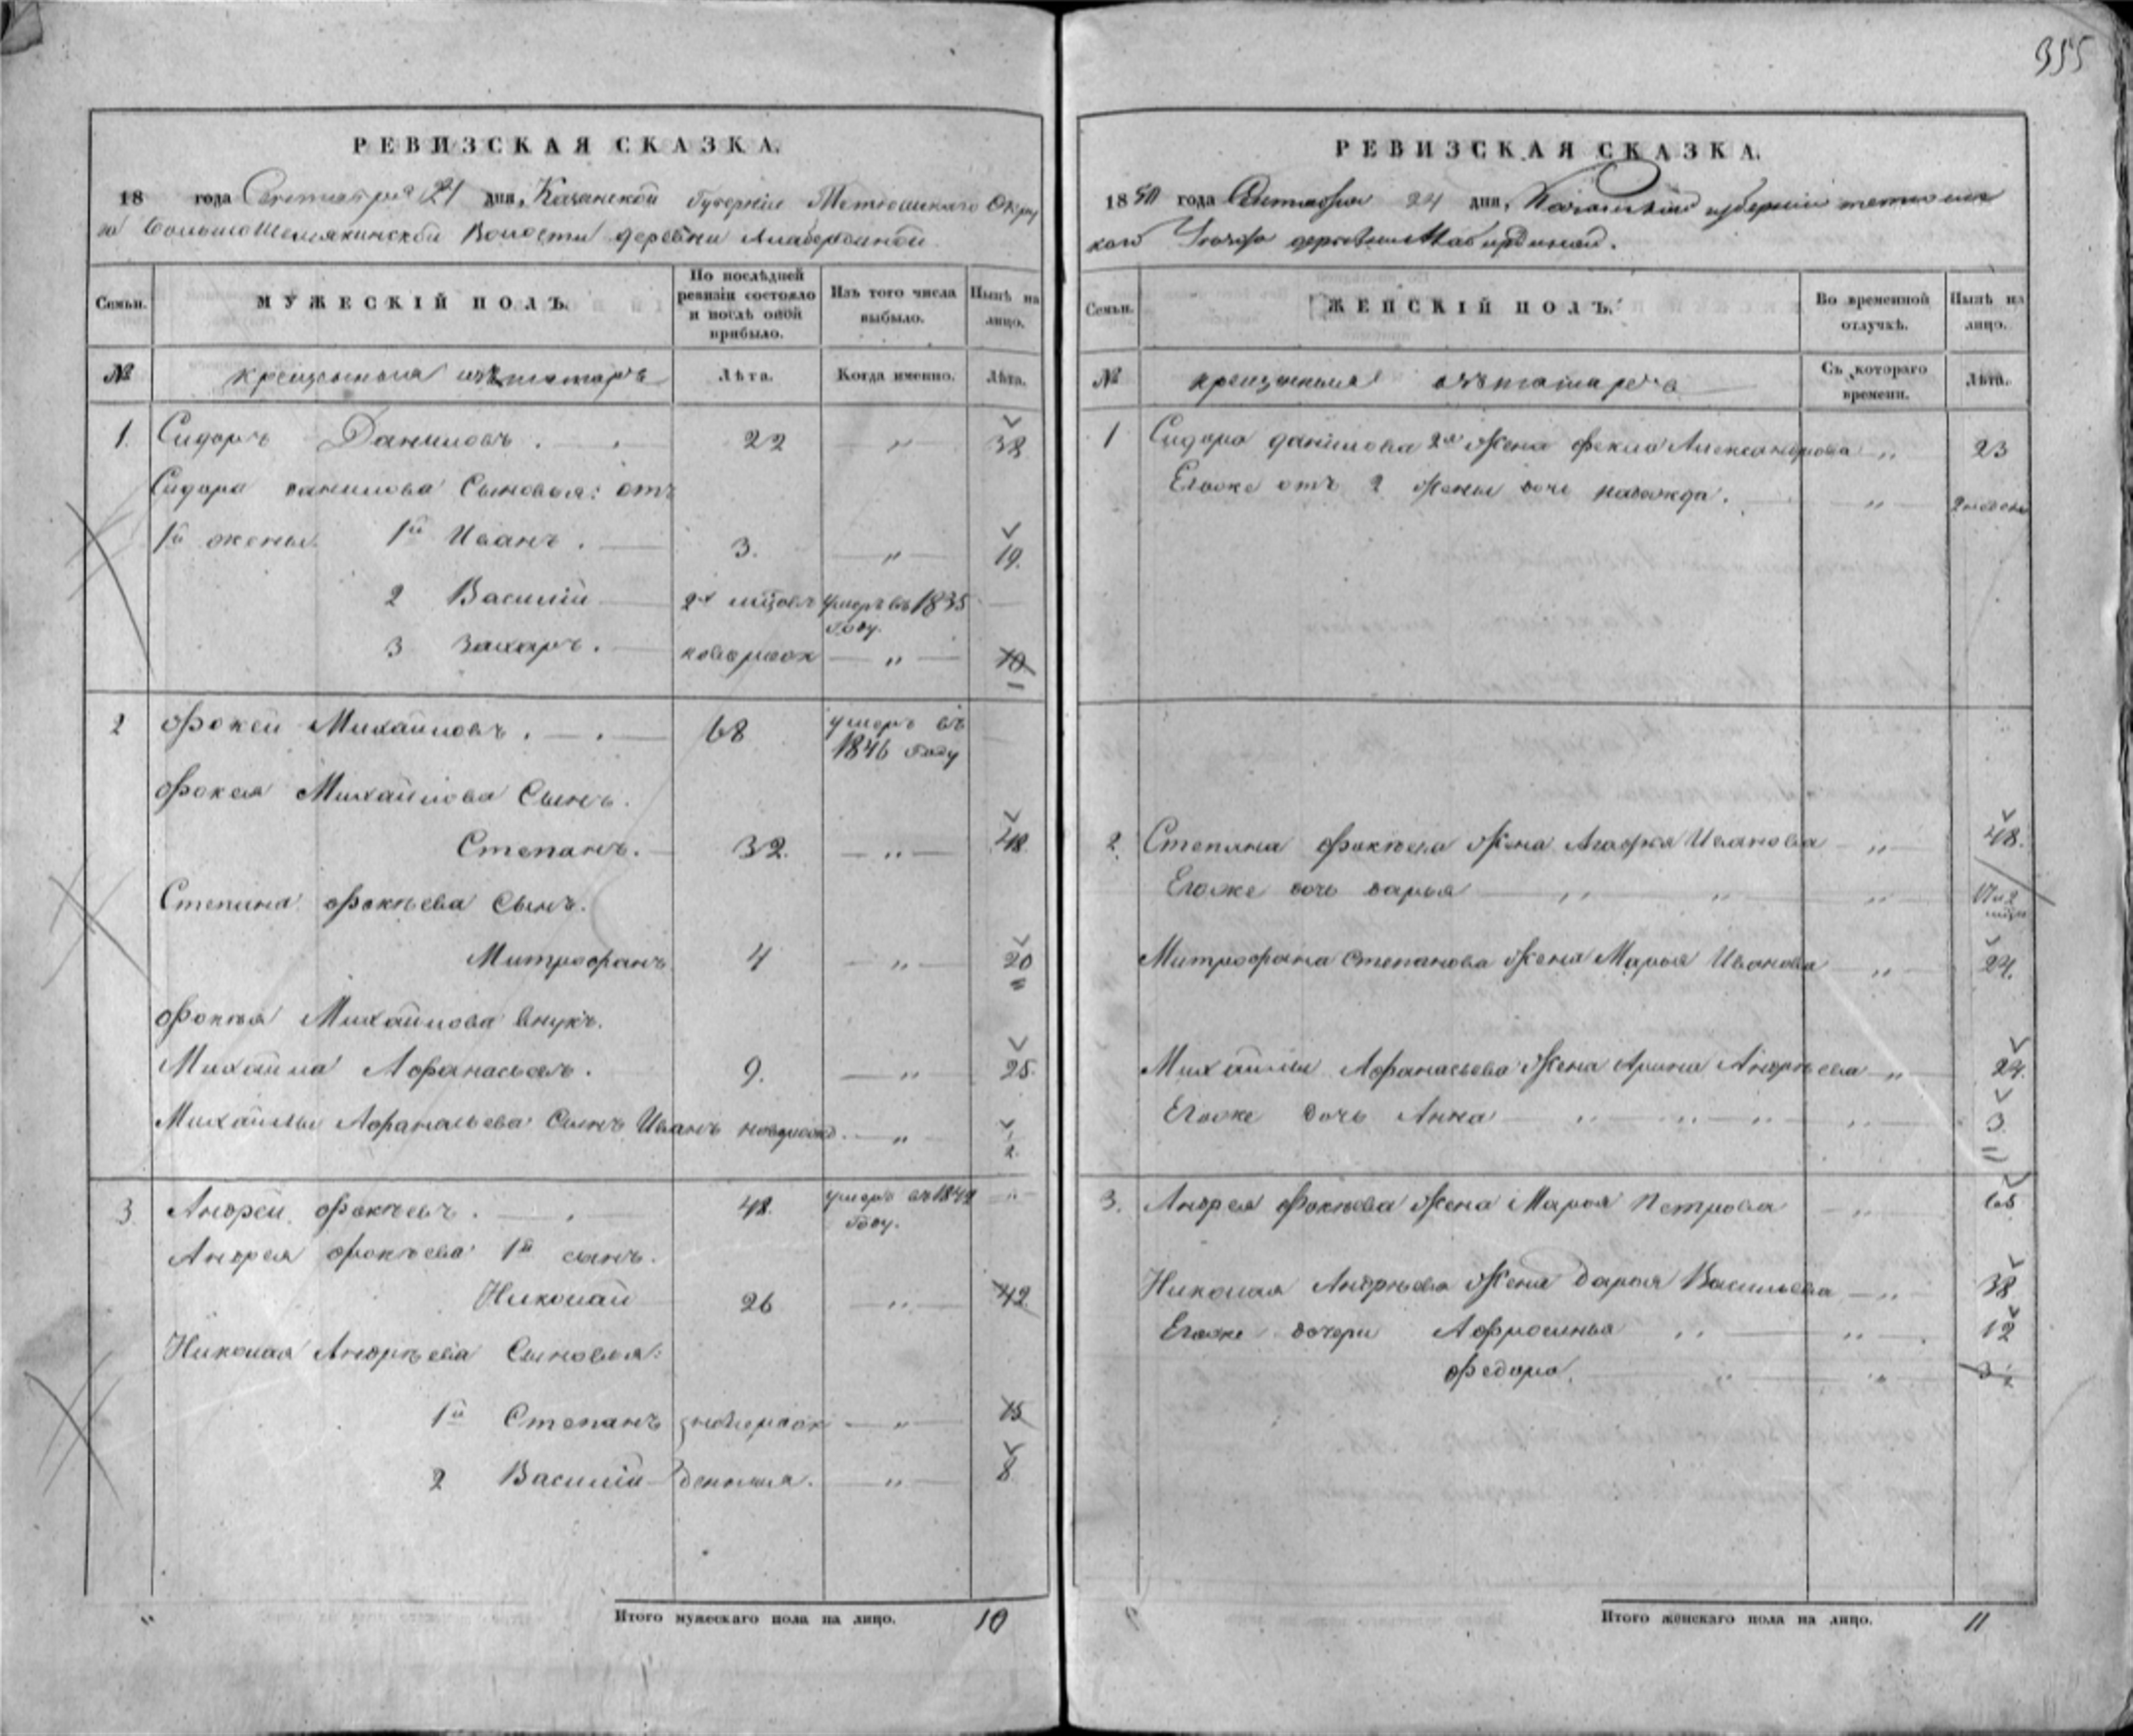 355
РЕВИЗСКАЯ СКАЗКА.
18 года Сентября 24 дня, Казанской Губернiи Тетюшскаго Окру
га Большешемякинской Волости деревни Алабердиной
Семьи. МУЖЕСКIЙ ПОЛЪ. По послѣдней ревизiи состояло и послѣ оной прибыло. Изъ того числа выбыло. Нынѣ на лицо.
№ крещеныя изъ татаръ Лѣта. Когда именно. Лѣта.
1. Сидоръ Даниловъ. 22 — " — 38
Сидора Данилова Сыновья: отъ
1й жены 1й Иванъ. 3. — " — 19.
2 Василiй 2х мцовъ умеръ въ 1835 году. —
3 Захаръ. новорожд — " — 10
2 Фокей Михайловъ. 68 умеръ въ 1846 году
Фокея Михайлова Сынъ.
Степанъ. 32. — " — 48
Степана Фокѣева Сынъ.
Митрофанъ 4 — " — 20
Фокѣя Михайлова внукъ.
Михайла Афанасьевъ. 9. — " — 25.
Михайлы Афанасьева Сынъ Иванъ новорожд. — " — ½
3 Андрей Фокѣевъ. 48. умеръ въ 1842 году. — " —
Андрея Фокѣева 1й сынъ.
Николай 26 — " — 42.
Николая Андрѣева Сыновья:
1й Степанъ новорожд — " — 15
2 Василiй — " — 8
Итого мужескаго пола на лицо. 10
РЕВИЗСКАЯ СКАЗКА.
1850 года Сентября 24 дня, Казанской губернiи тетюшс
каго Округа деревни Алабердиной.
Семьи. ЖЕНСКIЙ ПОЛЪ. Во временной отлучкѣ. Нынѣ на лицо.
№ крещеныя изъ татаръ Съ котораго времени. Лѣта.
1 Сидора Данилова 2я Жена Фекла Александрова — " — 23
Егоже отъ 2 Жены дочь надежда. — " — 2 недели
2. Степана Фокѣева Жена Агафья Иванова — " — 48.
Егоже дочь дарья — " — 17 и 2 мцн
Митрофана Степанова Жена Марья Иванова — " — 24.
Михайлы Афанасьева Жена Арина Андрѣева — " — 24.
Егоже дочь Анна — " — 3
3. Андрея Фокѣева Жена Марья Петрова — " — 65
Николая Андрѣева Жена Дарья Васильева — " — 38
Егоже дочери Афросинья — " — 12
Федора. — " — 3½
Итого женскаго пола на лицо. 11